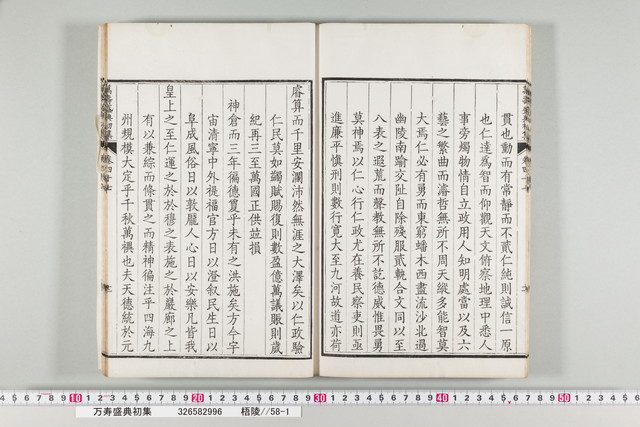 貫也動而有常靜而不貳仁純則誠信一原
也仁達為智而仰觀天文俯察地理中悉人
事旁燭物情自立政用人知明處當以及六
藝之繁曲而濬哲無所不周天縱多能智莫
大焉仁必有勇而東窮蟠木西盡流沙北過
幽陵南踰交阯自除殘服貳軌合文同以至
八表之遐荒而聲教無所不訖德威惟畏勇
莫神焉以仁心行仁政尤在養民察吏則亟
進廉平慎刑則數行寬大至九河故道亦荷
睿算而千里安瀾沛然無涯之大澤矣以仁政驗
仁民莫如蠲賦賜復則數盈億萬議賑則歲
紀再三至萬國正供竝損
神倉而三年徧德敻乎未有之洪施矣方今宇
宙清寧中外禔福官方日以澄叙民生日以
阜成風俗日以敦龎人心日以安樂凡皆我
皇上之至仁運之於於穆之表施之於嚴廊之上
有以兼綜而條貫之而精神徧注乎四海九
州規模大定乎千秋萬禩也夫天德統於元
万寿盛典初集 326582996 梧陵//58-1